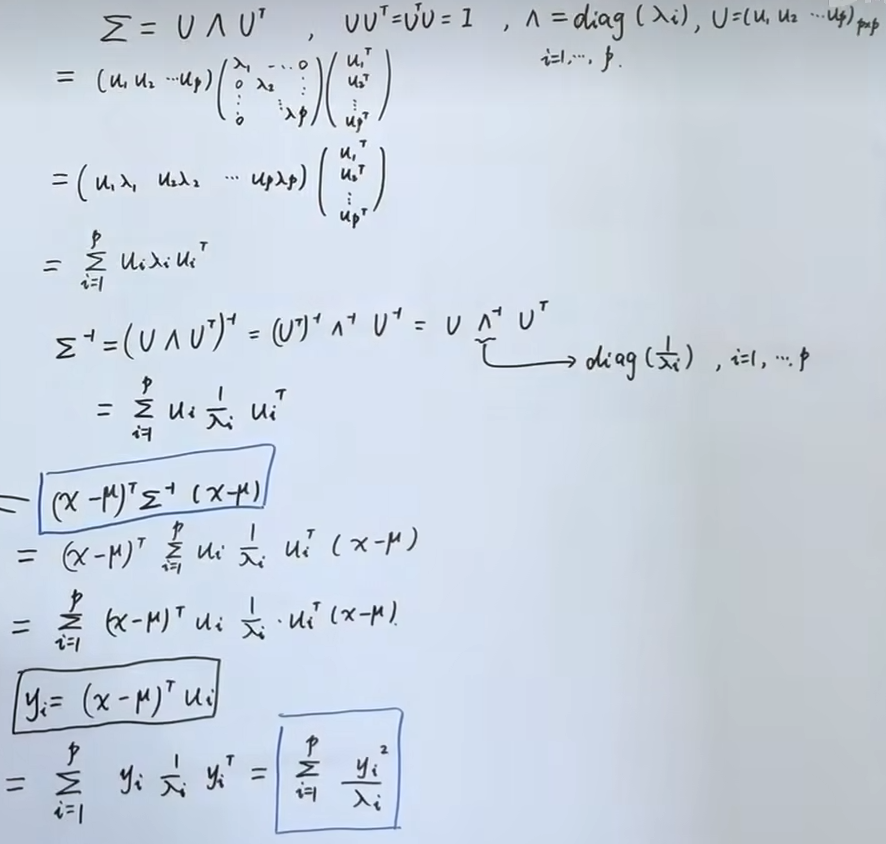 Σ = U Λ Uᵀ , UUᵀ=UᵀU = I , Λ = diag(λi), U=(u₁ u₂ ⋯ up)p×p
i=1,⋯, p.
= (u₁ u₂ ⋯ up) (λ₁ ⋯ 0 0 λ₂ ⋮ ⋮ 0 λp) (u₁ᵀ u₂ᵀ ⋮ upᵀ)
= (u₁λ₁ u₂λ₂ ⋯ upλp) (u₁ᵀ u₂ᵀ ⋮ upᵀ)
= Σ_{i=1}^{p} ui λi uiᵀ
Σ⁻¹ = (U Λ Uᵀ)⁻¹ = (Uᵀ)⁻¹ Λ⁻¹ U⁻¹ = U Λ⁻¹ Uᵀ
→ diag(1/λi) , i=1, ⋯, p
= Σ_{i=1}^{p} ui 1/λi uiᵀ
= (x-μ)ᵀ Σ⁻¹ (x-μ)
= (x-μ)ᵀ Σ_{i=1}^{p} ui 1/λi uiᵀ (x-μ)
= Σ_{i=1}^{p} (x-μ)ᵀ ui 1/λi · uiᵀ (x-μ).
yi = (x-μ)ᵀ ui
= Σ_{i=1}^{p} yi 1/λi yiᵀ = Σ_{i=1}^{p} yi²/λi